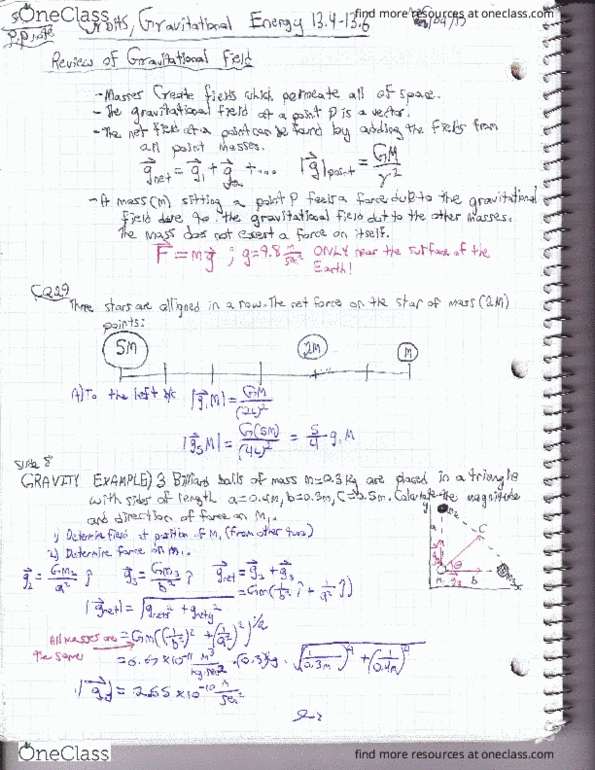 OneClass
find more resources at oneclass.com
Orbits, Gravitational Energy 13.4-13.6
Review of Gravitational Field
- Masses Create fields which permeate all of space.
- The gravitational field at a point P is a vector.
- The net field at a point can be found by adding the fields from
all point masses.
g⃗net = g⃗1 + g⃗2 + ... |g⃗|point = GM/r²
- A mass (m) sitting a point P feels a force due to the gravitational
field due to the gravitational field due to the other masses.
The mass does not exert a force on itself.
F⃗ = mg⃗ ; g=9.8 m/sec² ONLY near the surface of the
Earth!
Three stars are alligned in a row. The net force on the star of mass (2M)
points:
5M 2M M
A) To the left b/c |g⃗1M| = GM/(2L)²
|g⃗5M| = G(5M)/(4L)² = 5/4 g1M
Slide 8
GRAVITY EXAMPLE) 3 Billiard balls of mass m=0.3 kg are placed in a triangle
with sides of length a=0.4m, b=0.3m, C=0.5m. Calculate the magnitude
and direction of force on M1.
1) Determine field at position of M1 (from other two)
2) Determine force on M1.
y a C θ b
g⃗2 = Gm2/a² ĵ g⃗3 = Gm3/b² î g⃗net = g⃗2 + g⃗3
= Gm(1/b² î + 1/a² ĵ)
|g⃗net| = √(gnetx² + gnety²)
All masses are
the same
= Gm((1/b²)² + (1/a²)²)^1/2
= 6.67 × 10⁻¹¹ m³/kg·sec² · (0.3)kg · √((1/0.3m)⁴ + (1/0.4m)⁴)
|g⃗| = 2.55 × 10⁻¹⁰ m/sec²
OneClass
find more resources at oneclass.com